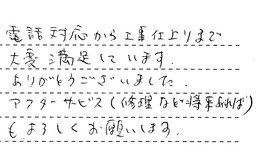 電話対応から工事仕上りまで
大変満足しています.
ありがとうございました.
アフターサービス(修理など将来あれば)
もよろしくお願いします.